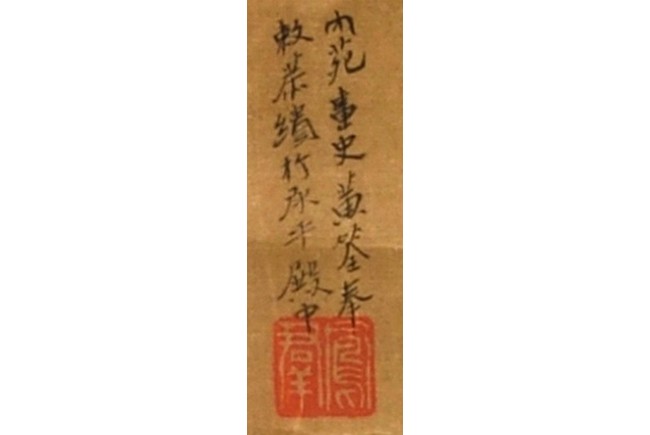 內苑畫史黃筌奉
敕恭繪於永平殿中